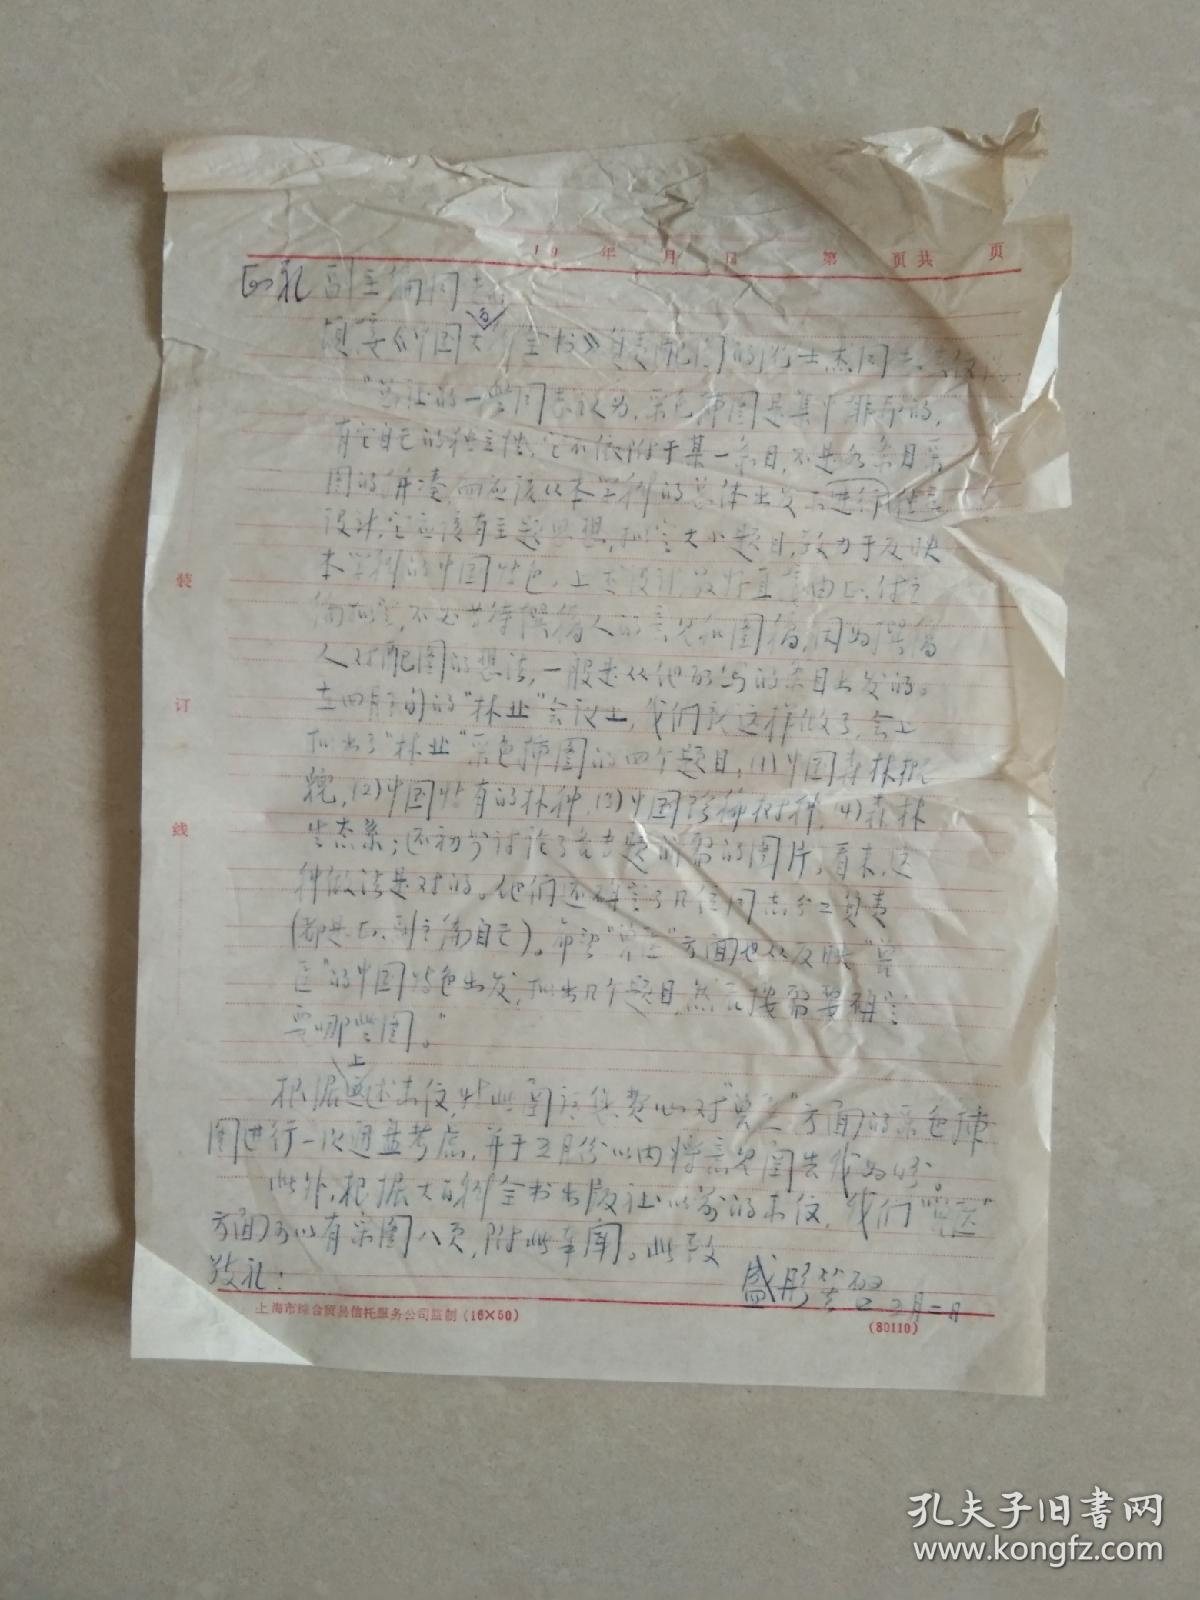 19 年 月 日 第 页共 页
副主编同志
《中国大百科全书》负责配图的 士杰同志来信说
"学社的一些同志认为,彩色插图是集中排印的,
有它自己的独立性,它不依附于某一条目,不是各条目采
图的拼凑,而应该从本学科的总体出发来进行
设计,它应该有主题思想,拟定大小题目,致力于反映
本学科的中国特色。上述设计最好直接由正、付主
编拟定,不必等待撰稿人的意见和图稿,因为撰稿
人对配图的想法,一般是从他所写的条目出发的。
在四月下旬的"林业"会议上,我们就这样做了,会上
拟出了"林业"彩色插图的四个题目,(1)中国森林概
貌,(2)中国特有的林种,(3)中国珍稀树种,(4)森林
生态系;还初步讨论了各专题所需的图片。看来,这
种做法是对的。他们还确定了几位同志分工负责
(都是正、副主编自己)。希望"兽医"方面也从反映"兽
医"的中国特色出发,拟出几个题目,然后按需要确定
要哪些图。"
根据上述来信,特此函请您费心对"兽医"方面的彩色插
图进行一次通盘考虑,并于五月份以内将意见函告我为好。
此外,根据大百科全书出版社以前的来信,我们"兽医"
方面可以有彩图八页,附此奉闻。此致
敬礼!
盛彤笙 五月二日
装
订
线
上海市综合贸易信托服务公司监制 (16×50)
(80110)
孔夫子旧书网
www.kongfz.com